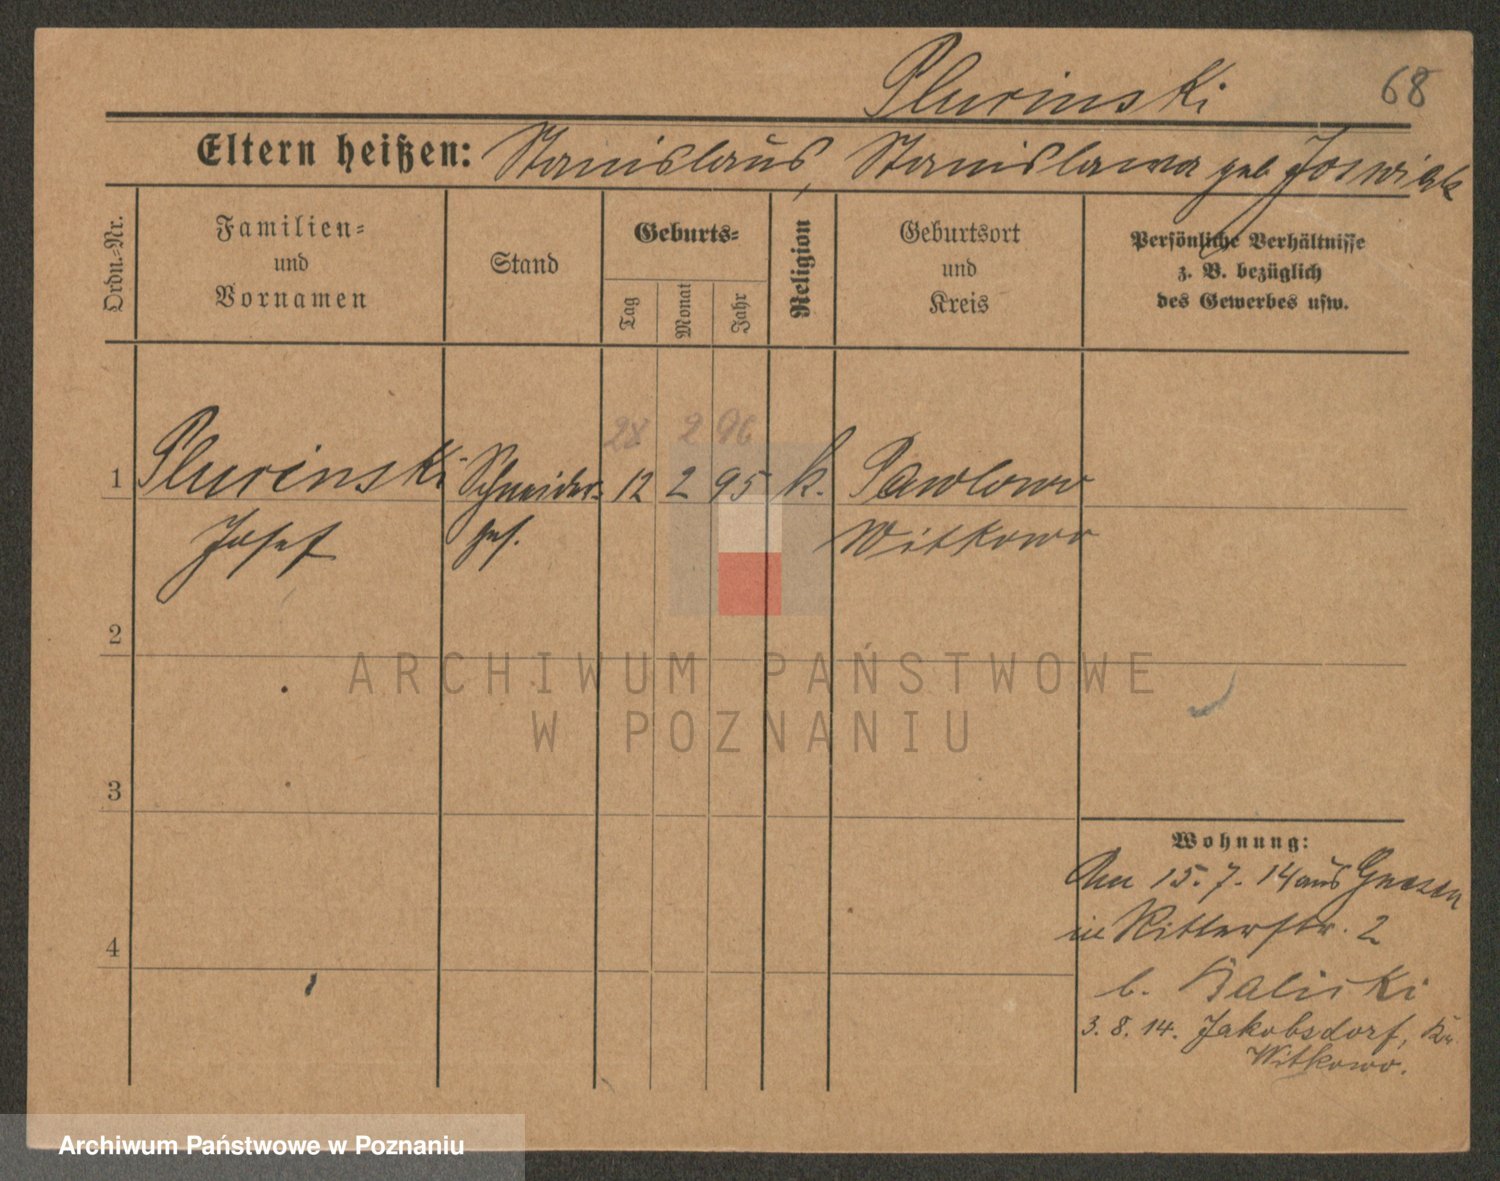 Plurinski 68
Eltern heißen: Stanislaus, Stanislawa geb
Ordn.-Nr.
Familien-
und
Vornamen
Stand
Geburts-
Tag
Monat
Jahr
Religion
Geburtsort
und
Kreis
Persönliche Verhältnisse
z. B. bezüglich
des Gewerbes usw.
28 2 96
1 Plurinski Schneider- 12 2 95 k. Pawlowo
Josef ges. Witkowo
2
3
4
Wohnung:
Am 15. 7. 14 aus Gnesen
in Ritterstr. 2
b. Baliski
3. 8. 14. Jakobsdorf, Kr.
Witkowo.
ARCHIWUM PAŃSTWOWE
W POZNANIU
Archiwum Państwowe w Poznaniu